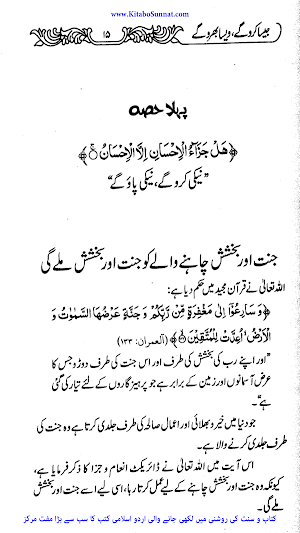 www.KitaboSunnat.com
جیسا کرو گے، ویسا بھرو گے
۱۵
پہلا حصہ
﴿هَلْ جَزَآءُ الْاِحْسَانِ اِلَّا الْاِحْسَانُ﴾
”نیکی کرو گے، نیکی پاؤ گے“
جنت اور بخشش چاہنے والے کو جنت اور بخشش ملے گی
اللہ تعالیٰ نے قرآن مجید میں حکم دیا ہے:
﴿وَسَارِعُوْٓا اِلٰى مَغْفِرَةٍ مِّنْ رَّبِّكُمْ وَجَنَّةٍ عَرْضُهَا السَّمٰوٰتُ وَ
الْاَرْضُ اُعِدَّتْ لِلْمُتَّقِيْنَ﴾ (آل عمران: ۱۳۳)
”اور اپنے رب کی بخشش کی طرف اور اس جنت کی طرف دوڑو جس کا
عرض آسمانوں اور زمین کے برابر ہے جو پرہیزگاروں کے لئے تیار کی گئی
ہے“۔
جو دنیا میں خیر و بھلائی اور اعمال صالحہ کی طرف جلدی کرتا ہے وہ جنت کی
طرف جلدی کرنے والا ہے۔
اس آیت میں اللہ تعالیٰ نے ڈائریکٹ انعام و جزا کا ذکر فرمایا ہے،
کیونکہ وہ جنت اور بخشش چاہنے کے لیے عمل کرتا رہا، اسی لیے اسے جنت اور بخشش
ملے گی۔
کتاب و سنت کی روشنی میں لکھی جانے والی اردو اسلامی کتب کا سب سے بڑا مفت مرکز